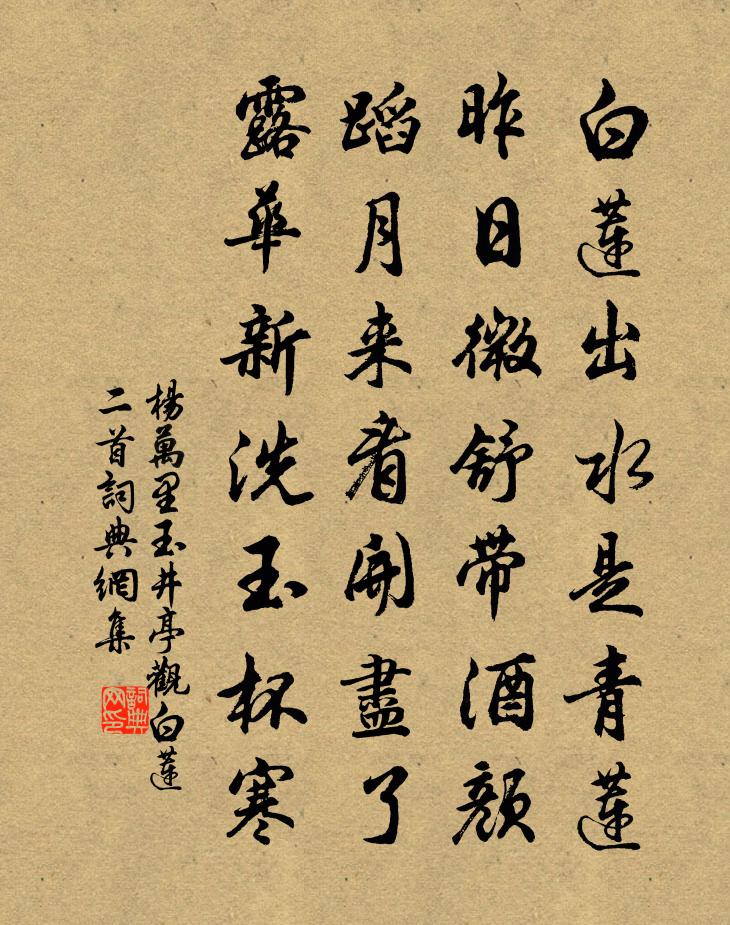 白蓮出水是青蓮
昨日微舒带酒顏
蹈月来看開盡了
露華新洗玉杯寒
楊萬里玉井亭觀白蓮
二首詞典網集
詞典网印